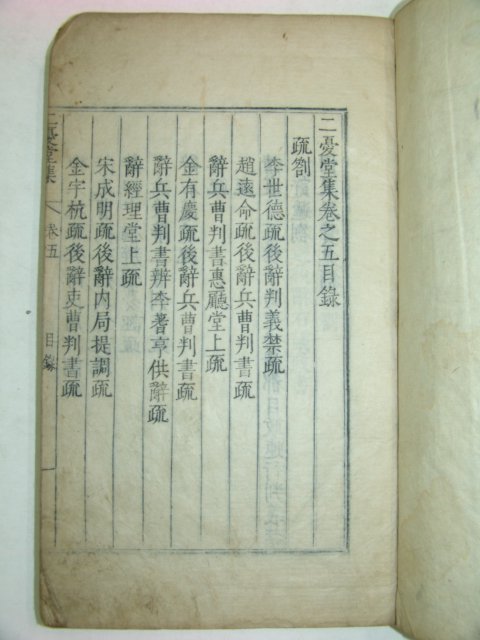 二憂堂集卷之五目錄
疏劄
李世德疏後辭判義禁疏
趙遠命疏後辭兵曹判書疏
辭兵曹判書惠廳堂上疏
金有慶疏後辭兵曹判書疏
辭兵曹判書辨李蓍亨供辭疏
辭經理堂上疏
宋成明疏後辭內局提調疏
金宇杭疏後辭吏曹判書疏
二憂堂集
卷五
目錄